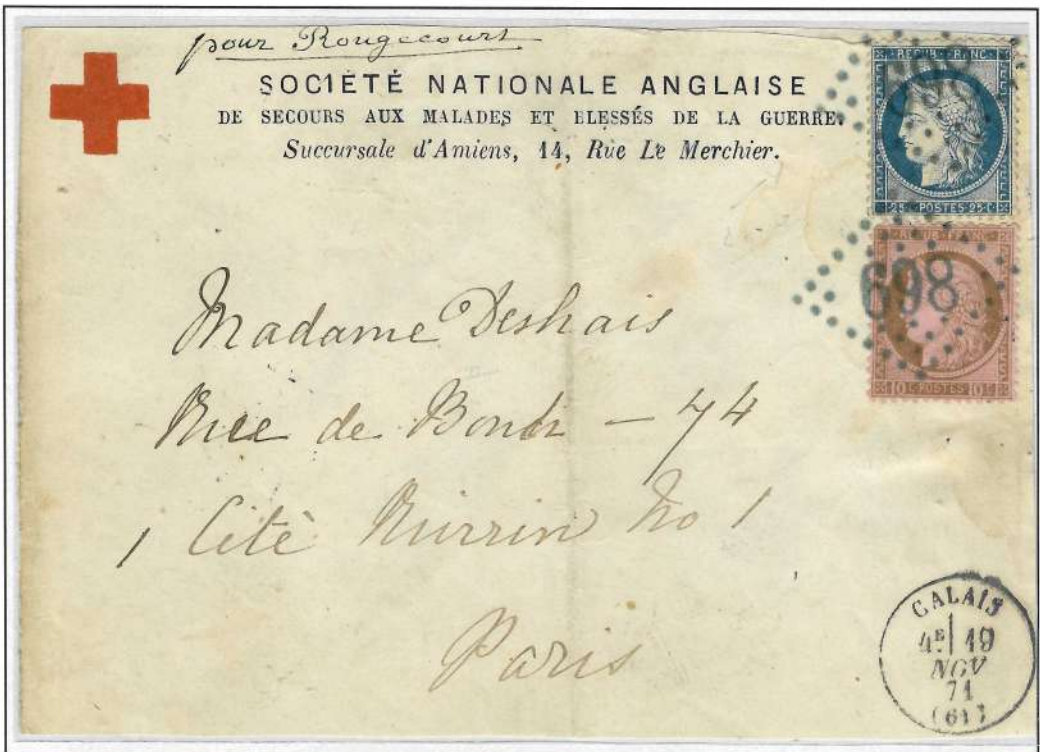 pour Rougecourt
SOCIÉTÉ NATIONALE ANGLAISE
DE SECOURS AUX MALADES ET BLESSÉS DE LA GUERRE.
Succursale d'Amiens, 14, Rue Le Merchier.
REPUB. FRANC.
25 C POSTES 25 C
REPUB. FRANC.
698
10 C POSTES 10 C
Madame Deshais
Rue de Bondi - 74
1 Cité No 1
Paris
CALAIS
4E 19
NOV
71
(61)